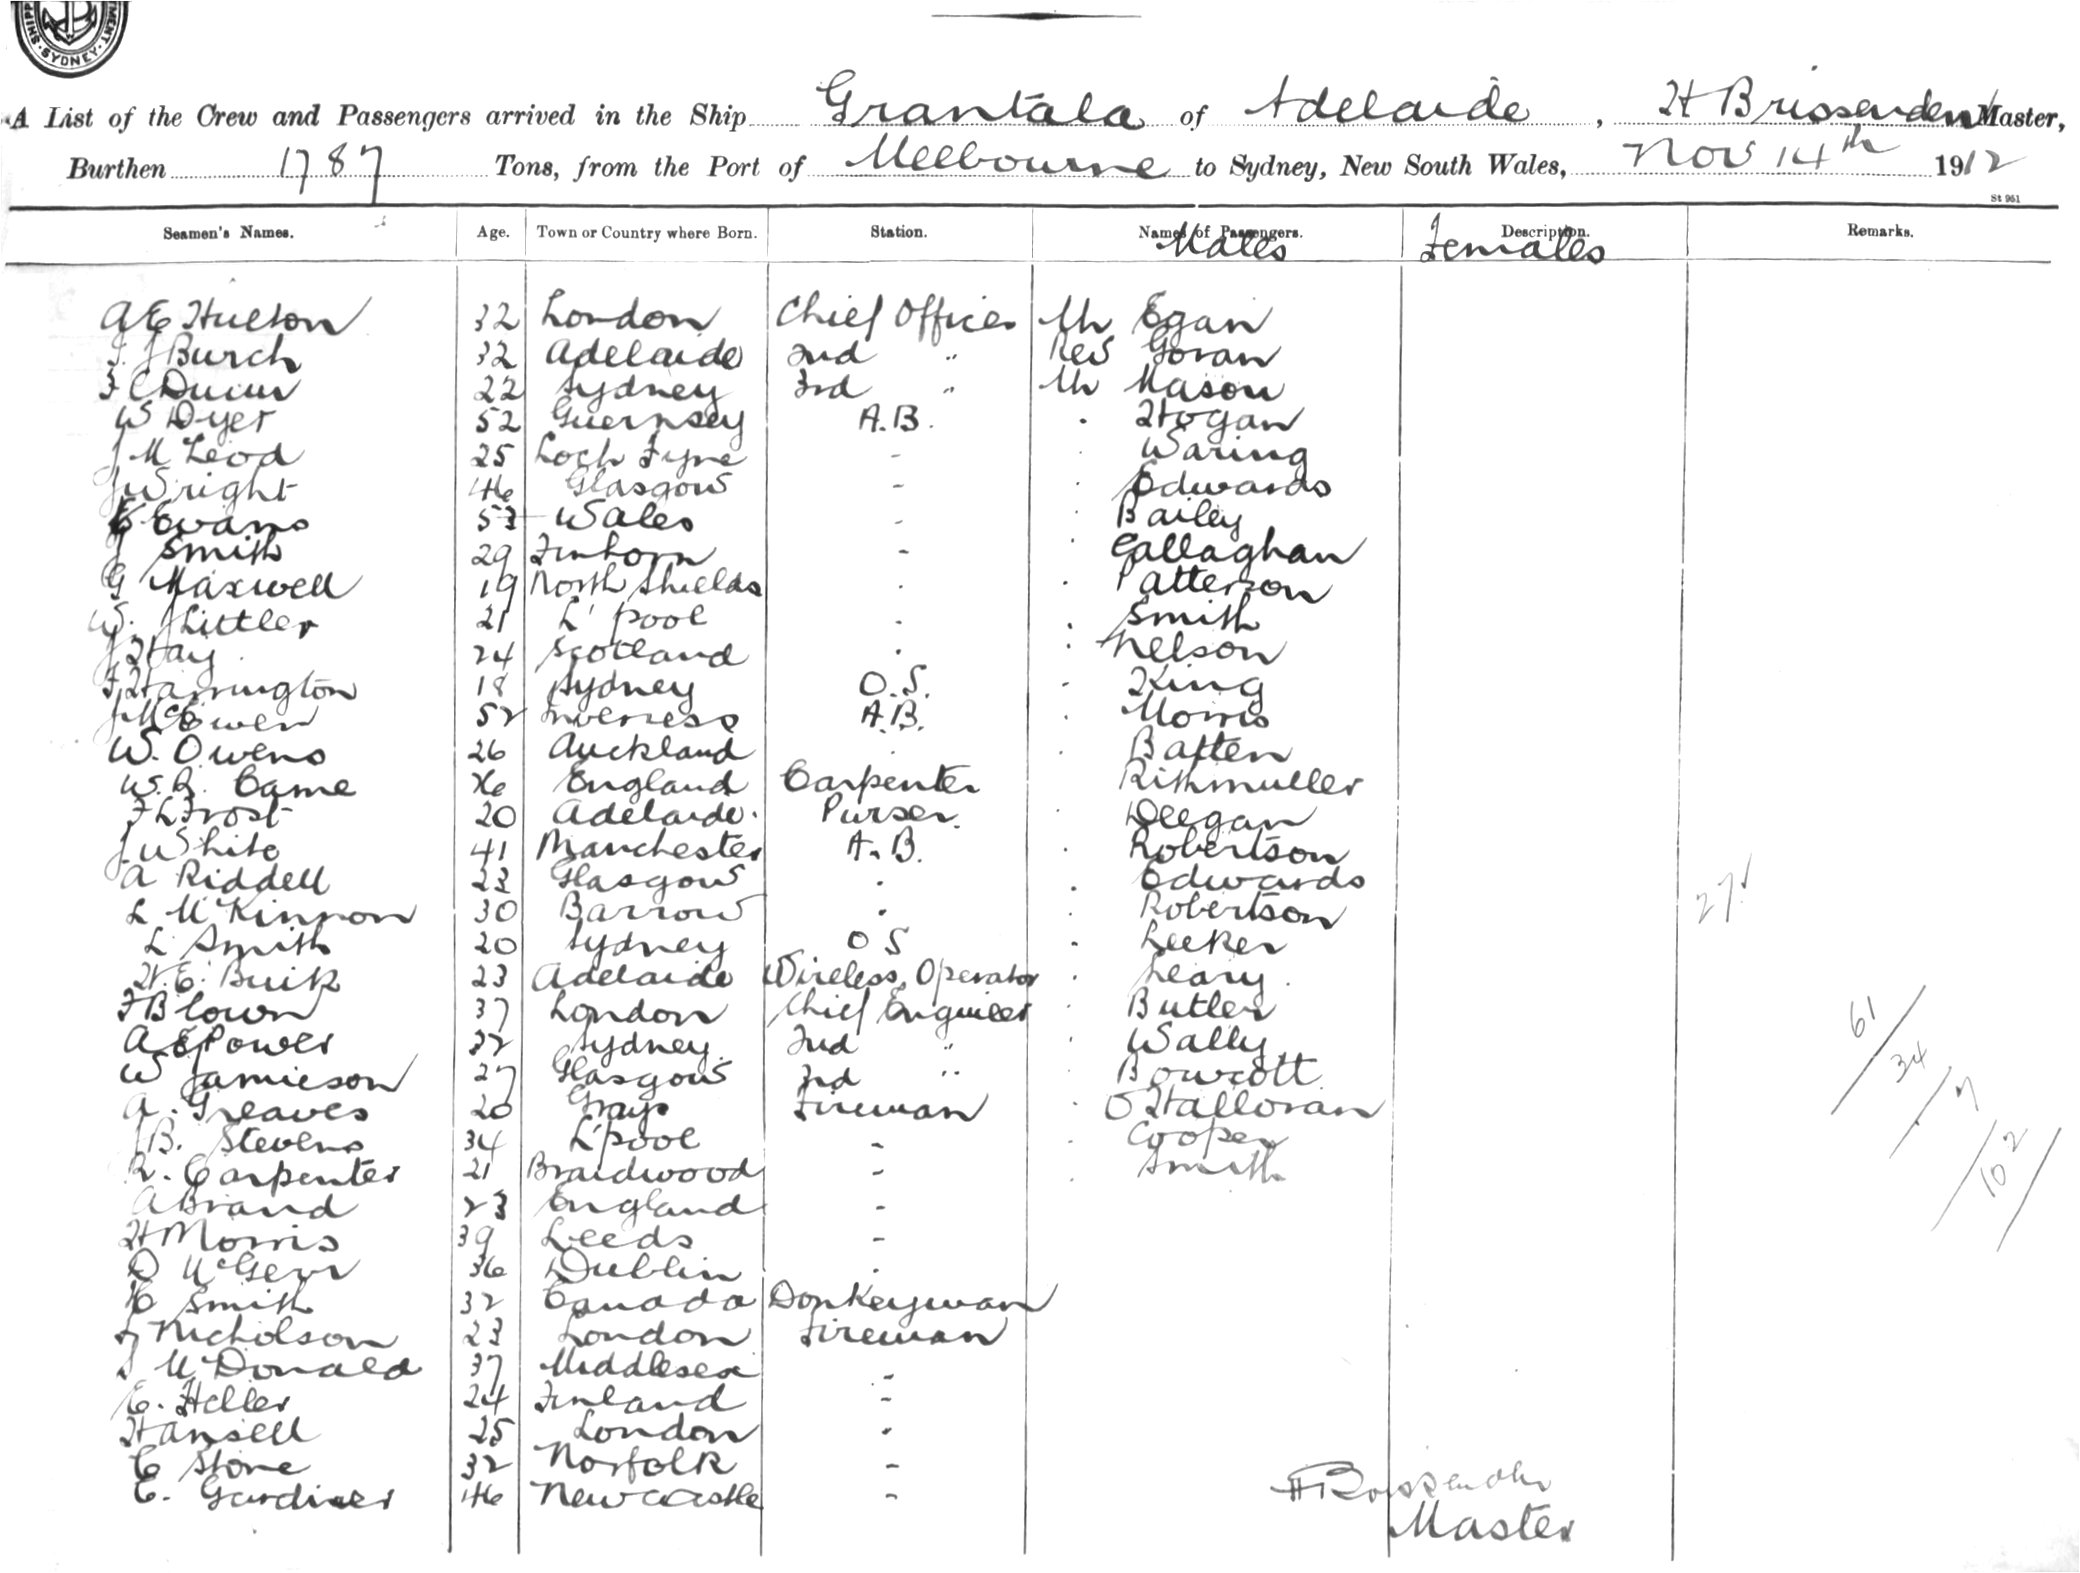 SHIPP MENT. SYDNEY.
A List of the Crew and Passengers arrived in the Ship Grantala of Adelaide, H Brissenden Master,
Burthen 1787 Tons, from the Port of Melbourne to Sydney, New South Wales, Nov 14th 1912
St 951
Seamen's Names. Age. Town or Country where Born. Station. Names of Passengers. Description. Remarks.
Males Females
A E Hulton 32 London Chief Officer Mr Egan
J. J Burch 32 Adelaide 2nd " Rev Goran
F C Dunn 22 Sydney 3rd " Mr Mason
W Dyer 52 Guernsey A.B. . Hogan
J McLeod 25 Loch Fyne - . Waring
J Wright 46 Glasgow - . Edwards
E Evans 53 Wales - . Bailey
J Smith 29 Finhorn - . Gallaghan
G Maxwell 19 North Shields . . Patterson
W. J Littler 21 L'pool . . Smith
J Hay 24 Scotland . . Nelson
F Harrington 18 Sydney O.S. - King
J McEwen 52 Inverness A.B. . Morris
W. Owens 26 Auckland . . Batten
W. R. Came England Carpenter Rithmuller
F L Frost 20 Adelaide. Purser. . Deegan
J White 41 Manchester A.B. . Robertson
A Riddell 23 Glasgow . . Edwards
L McKinnon 30 Barrow . . Robertson 27
L Smith 20 Sydney O S . Leeker
H. E. Buik 23 Adelaide Wireless Operator . Leary
F Blown 37 London Chief Engineer . Butler
A E Power 32 Sydney. 2nd " . Wally 61
W Jamieson 27 Glasgow 3rd " . Bowcott 34
A. Greaves 20 Grays Fireman . O'Halloran 7
J B. Stevens 34 L'pool - . Cooper
R. Carpenter 21 Braidwood - . Smith 102
A Brand 23 England -
H Morris 39 Leeds -
D McGerr 36 Dublin .
E Smith 32 Canada Donkeyman
J Nicholson 23 London Fireman
J McDonald 37 Middlesex -
E. Heller 24 Finland -
Hansell 25 London .
C Stone 32 Norfolk -
E. Gardiner 46 Newcastle -
H Brissenden
Master